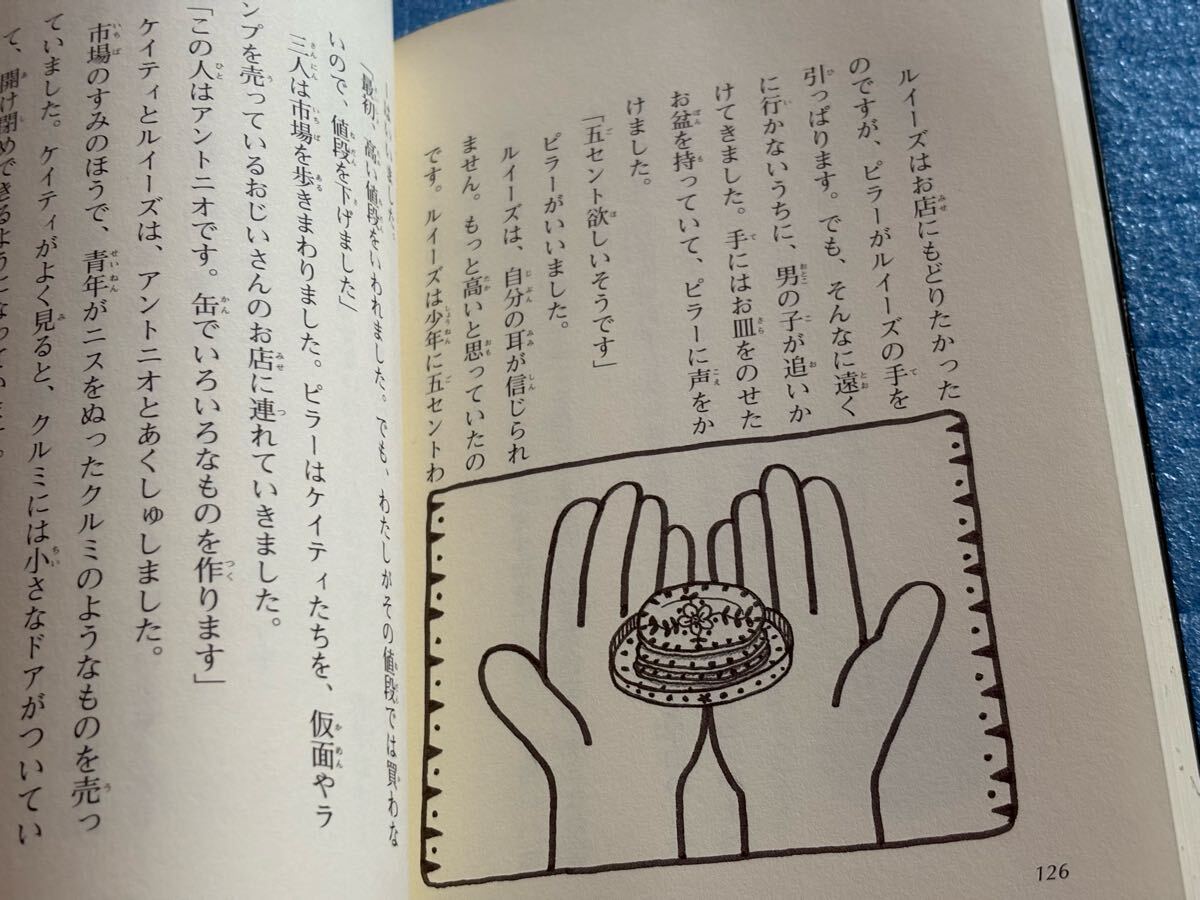 ルイーズはお店にもどりたかった
のですが、ピラーがルイーズの手を
引っぱります。でも、そんなに遠く
に行かないうちに、男の子が追いか
けてきました。手にはお皿をのせた
お盆を持っていて、ピラーに声をか
けました。
「五セント欲しいそうです」
ピラーがいいました。
ルイーズは、自分の耳が信じられ
ません。もっと高いと思っていたの
です。ルイーズは少年に五セントわ
126
ーはいいました。
「最初、高い値段をいわれました。でも、わたしがその値段では買わな
いので、値段を下げました」
三人は市場を歩きまわりました。ピラーはケイティたちを、仮面やラ
ンプを売っているおじいさんのお店に連れていきました。
「この人はアントニオです。缶でいろいろなものを作ります」
ケイティとルイーズは、アントニオとあくしゅしました。
市場のすみのほうで、青年がニスをぬったクルミのようなものを売っ
ていました。ケイティがよく見ると、クルミには小さなドアがついてい
て、開け閉めできるようになっていま